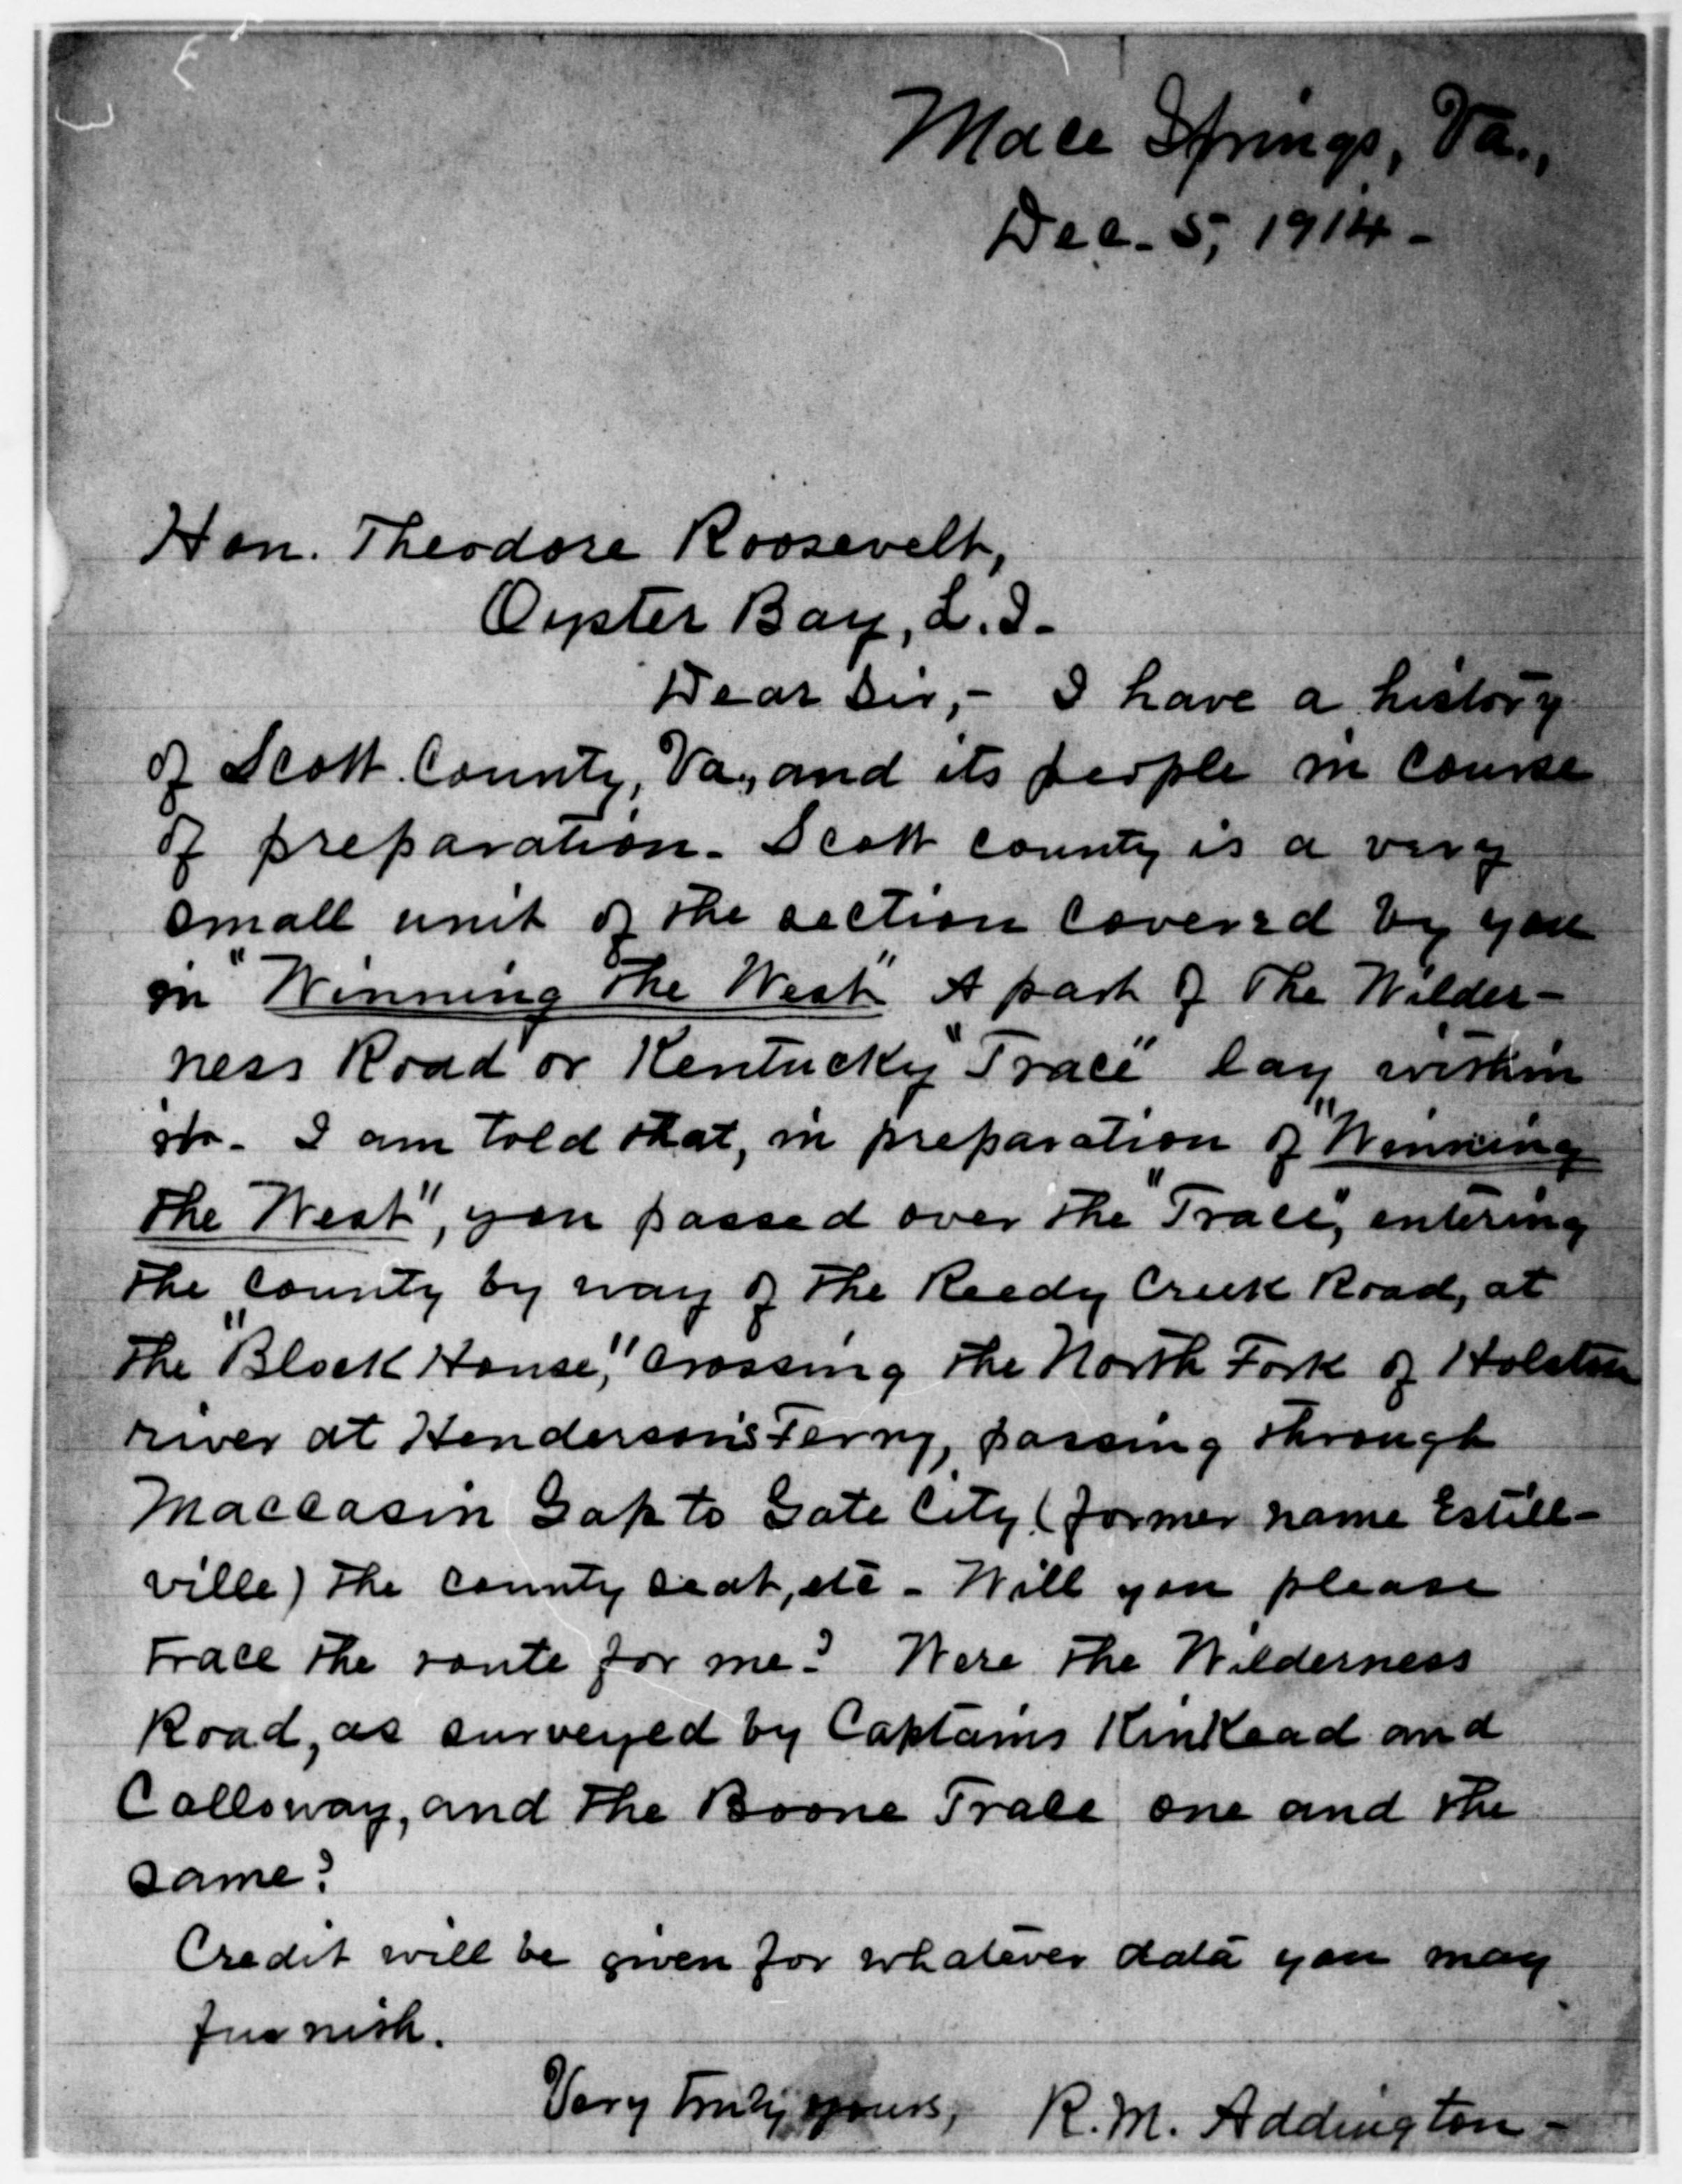 Mace Springs, Va.,
Dec. 5, 1914-
Hon. Theodore Roosevelt,
Oyster Bay, L.I.
Dear Sir,- I have a history
of Scott County, Va., and its people in course
of preparation. Scott county is a very
small unit of the section covered by you
in "Winning the West" A part of the Wilder-
ness Road or Kentucky "Trace" lay within
it. I am told that, in preparation of "Winning
the West", you passed over the "Trace", entering
the county by way of the Reedy Creek Road, at
the "Block House," crossing the North Fork of Holston
river at Henderson's Ferry, passing through
Maccasin Gap to Gate City (former name Estill-
ville) the county seat, etc. Will you please
trace the route for me? Were the Wilderness
Road, as surveyed by Captains Kinkead and
Calloway, and the Boone Trace one and the
same?
Credit will be given for whatever data you may
furnish.
Very truly yours, R.M. Addington-